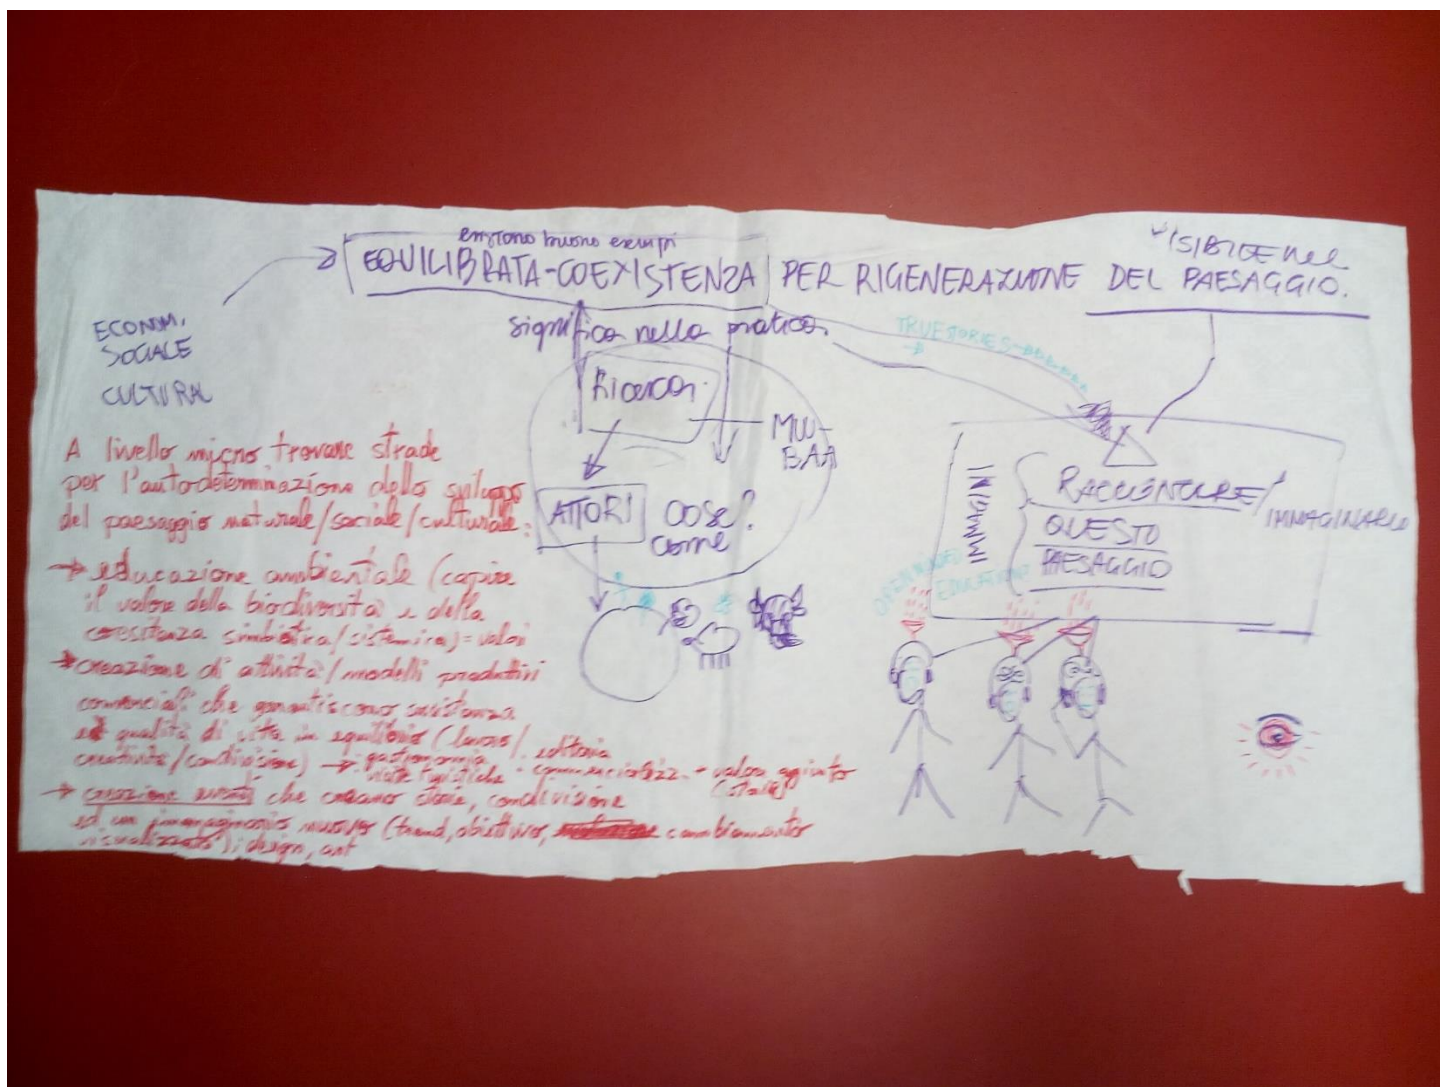 esistono buono esempi
EQUILIBRATA-COEXISTENZA PER RIGENERAZIONE DEL PAESAGGIO.
VISIBILE nel
significa nella pratica.
TRUE STORIES
ECONOM.
SOCIALE
CULTURAL
Ricerca
MUU-
BAA
ATTORI
COSE?
come
IMMAGINI
RACCONTARE/
IMMAGINARIO
QUESTO
PAESAGGIO
A livello micro trovare strade
per l'autodeterminazione dello sviluppo
del paesaggio naturale/sociale/culturale:
→ educazione ambientale (capire
il valore della biodiversità e della
coesitenza simbiotica/sistemica) = valori
→ creazione di attività/modelli produttivi
commerciali che garantiscono
ed qualità di vita in equilibrio (lavoro/
creatività/condivisione) → gastronomia
editoria
visite turistiche
commercializz. + valore aggiunto
→ creazione eventi che creano storie, condivisione
ed un immaginario nuovo (trend, obiettivo, cambiamento
visualizzato); design, art